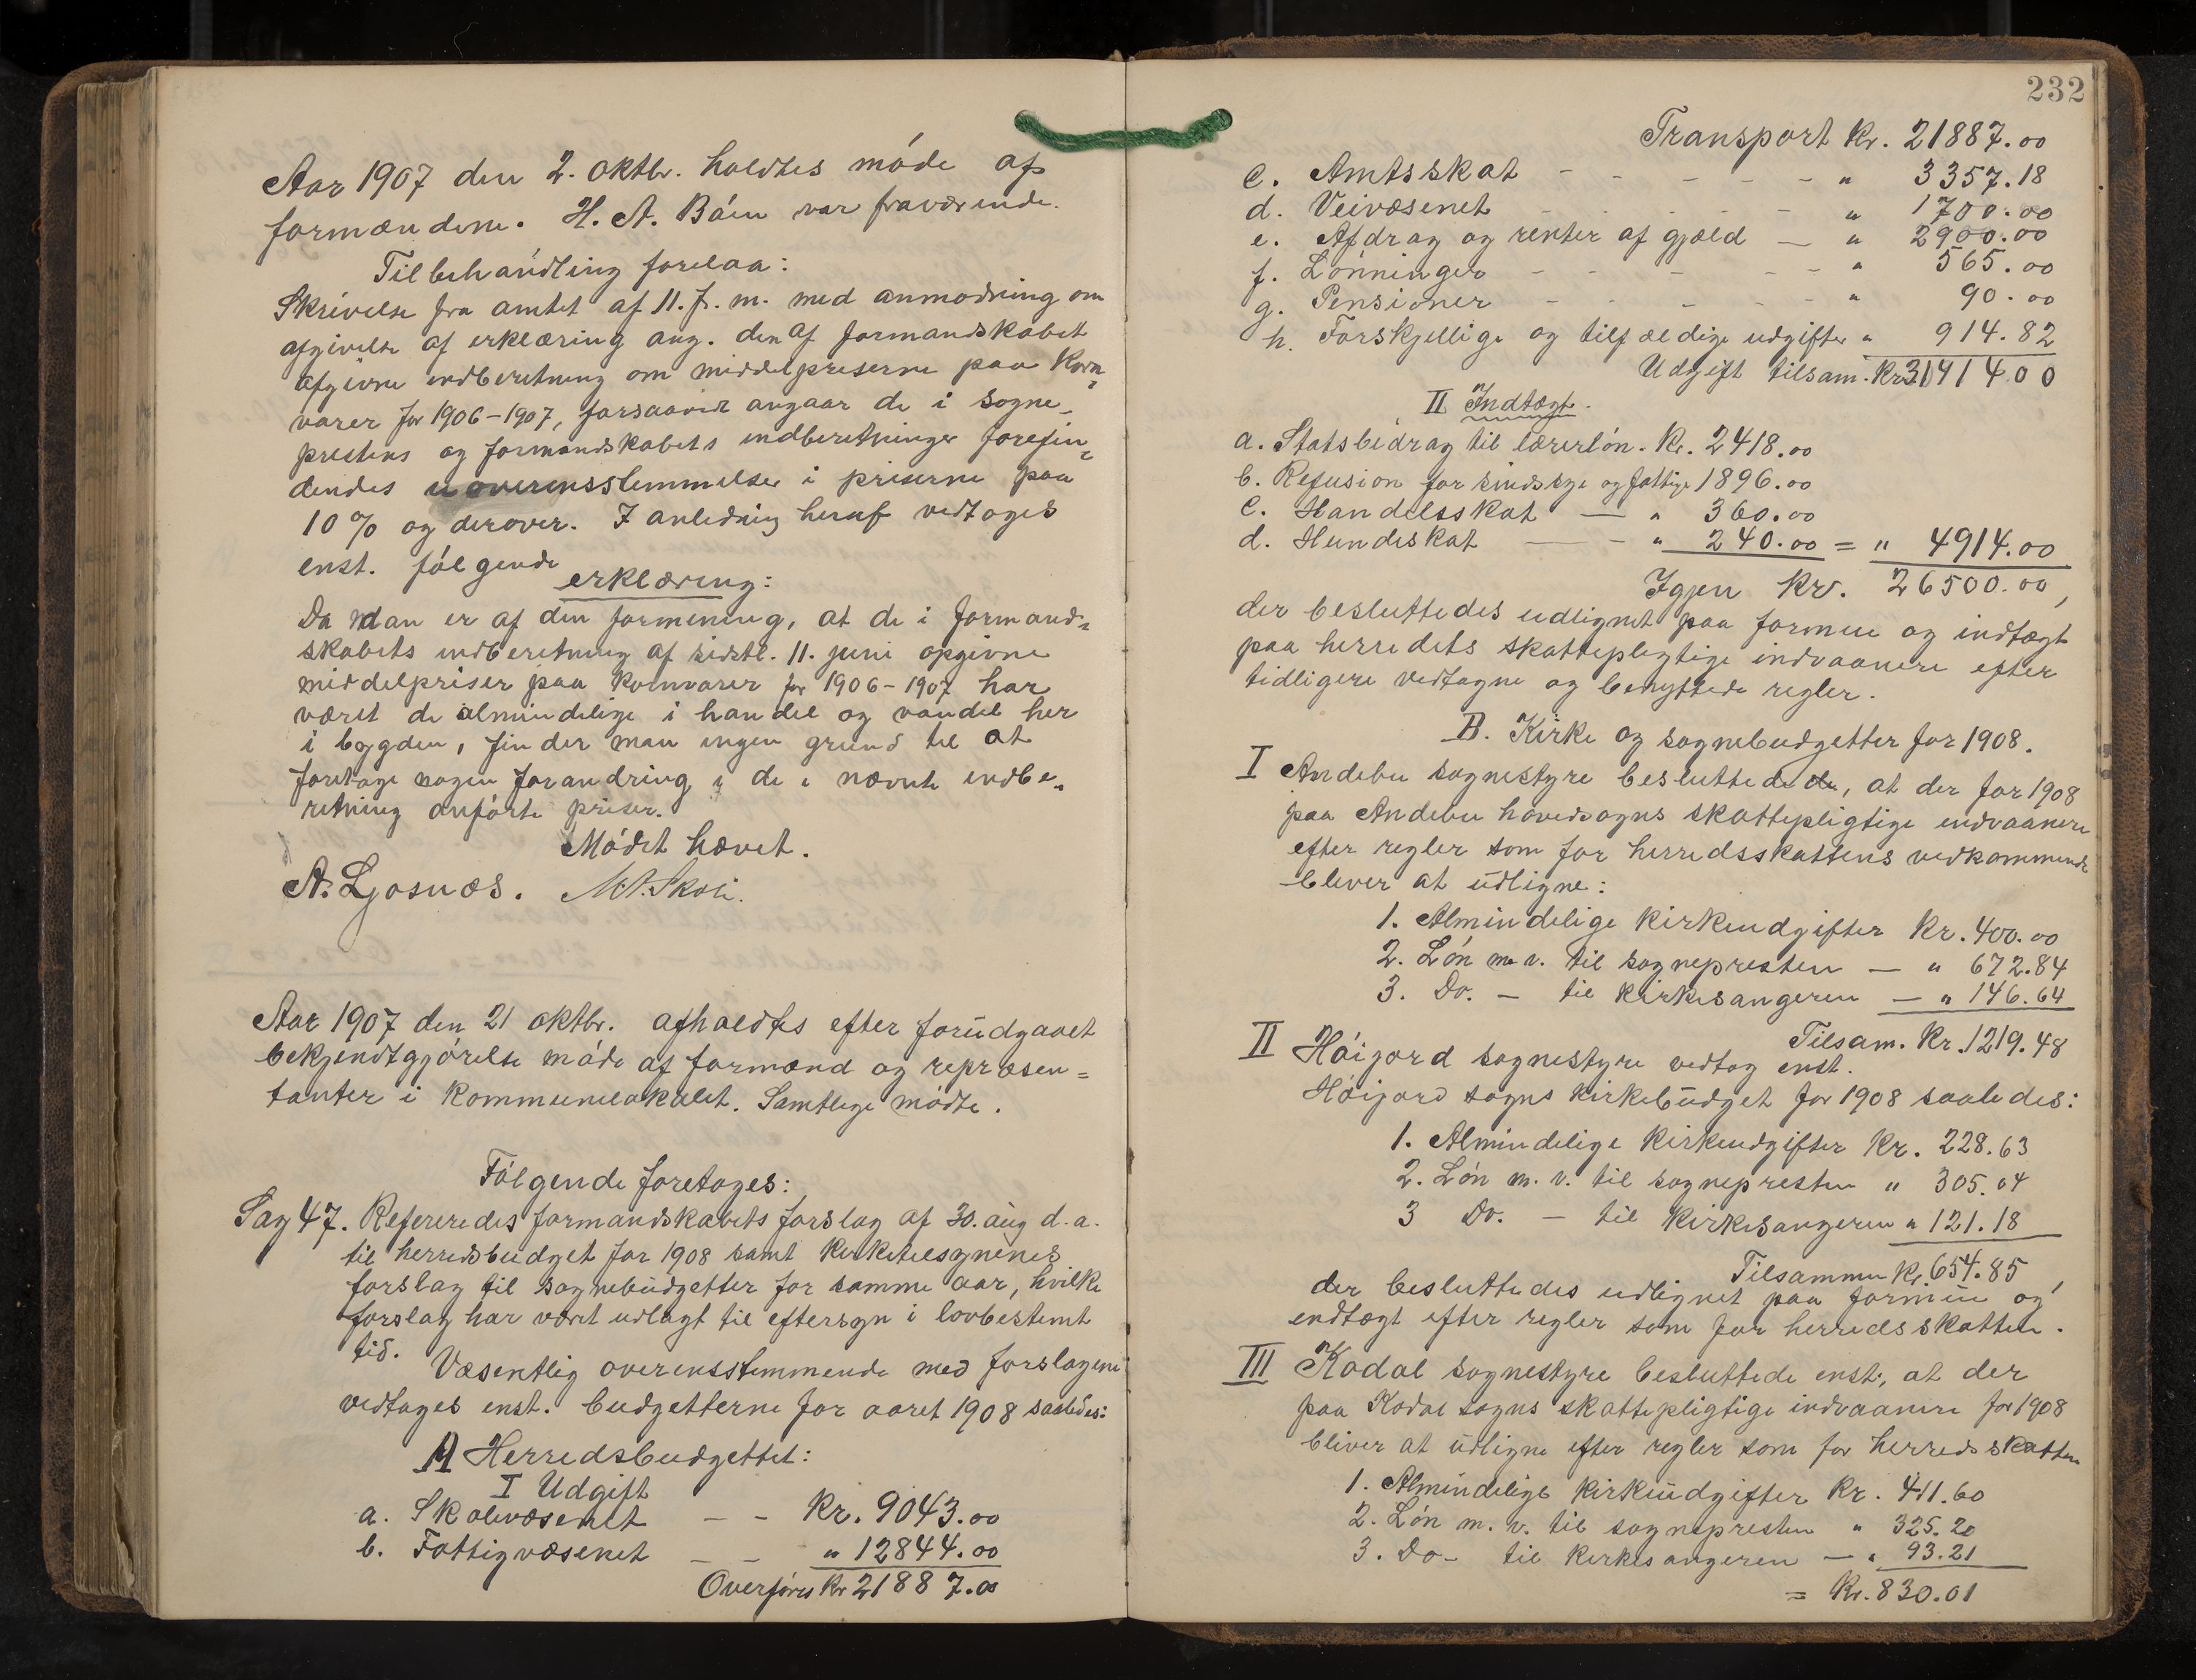 Aar 1907 den 2. oktbr. holdtes móde af
formændene. H. A. Báen var fraværende.
Til behandling forelaa:
Skrivelse fra amtet af 11. f. m. med anmodning om
afgivelse af erklæring ang. den af formandskabet
afgivne indberetning om middelpriserne paa korn-
varer for 1906-1907, forsaavidt angaar de i sogne-
prestens og formandskabets indberetninger forefin-
dendes uoverensstemmelser i priserne paa
10% og derover. I anledning heraf vedtoges
enst. fólgende
erklæring:
Da man er af den formening, at de i formand-
skabets indberetning af sidstl. 11. juni opgivne
middelpriser paa kornvarer for 1906-1907 har
været de almindelige i handel og vandel her
i bygden, finder man ingen grund til at
foretage nogen forandring i de i nævnte indbe-
retning anfórte priser.
Módet hævet.
A. Ljosnæs. M.A. Skoli.
Aar 1907 den 21 oktbr. afholdtes efter forudgaaet
bekjendtgjórelse móde af formænd og repræsen=
tanter i kommunelokalet. Samtlige módte.
Fólgende foretoges:
Sag 47. Refereredes formandskabets forslag af 30. aug d. a.
til herredsbudget for 1908 samt kirketilsynenes
forslag til sognebudgetter for samme aar, hvilke
forslag har været udlagt til eftersyn i lovbestemt
tid.
Væsentlig overensstemmende med forslagene
vedtoges enst. budgetterne for aaret 1908 saaledes:
A Herredsbudgettet:
I Udgift
a. Skolevæsenet - - Kr. 9043.00
b. Fattigvæsenet - - " 12844.00
Overfóres Kr 21887.00
232
Transport Kr. 21887.00
c. Amtsskat - - - - - " 3357.18
d. Veivæsenet - - - - - " 1700.00
e. Afdrag og renter af gjæld - " 2900.00
f. Lónninger - - - - - " 565.00
g. Pensioner - - - - - " 90.00
h. Forskjellige og tilfældige udgifter " 914.82
Udgift tilsam. Kr 31414.00
II Indtægt.
a. Statsbidrag til lærerlón. Kr. 2418.00
b. Refusion for sindssyge og fattige 1896.00
c. Handelsskat - " 360.00
d. Hundeskat - - " 240.00 = " 4914.00
Igjen Kr. 26500.00,
der besluttedes udlignet paa formue og indtægt
paa herredets skattepligtige indvaanere efter
tidligere vedtagne og benyttede regler.
B. Kirke og sognebudgetter for 1908.
I Andebu sognestyre besluttede de, at der for 1908
paa Andebu hovedsogns skattepligtige indvaanere
efter regler som for herredsskattens vedkommende
bliver at udligne:
1. Almindelige kirkeudgifter Kr. 400.00
2. Lón m. v. til sognepresten - " 672.84
3. Do. - til kirkesangeren - " 146.64
Tilsam. Kr. 1219.48
II Hóijord sognestyre vedtog enst.
Hóijord sogns kirkebudget for 1908 saaledes:
1. Almindelige kirkeudgifter Kr. 228.63
2. Lón m. v. til sognepresten " 305.04
3 Do. - til kirkesangeren " 121.18
Tilsammen Kr. 654.85,
der besluttedes udlignet paa formue og
indtægt efter regler som for herredsskatten.
III Kodal sognestyre besluttede enst., at der
paa Kodal sogns skattepligtige indvaanere for 1908
bliver at udligne efter regler som for herredsskatten
1. Almindelige kirkeudgifter Kr. 411.60
2. Lón m. v. til sognepresten " 325.20
3. Do - til kirkesangeren - " 93.21
= Kr. 830.01